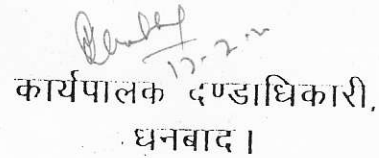 17-2-
कार्यपालक दण्डाधिकारी,
धनबाद।